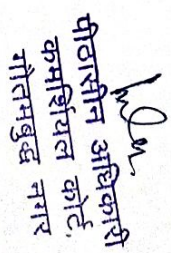 पीठासीन अधिकारी
कमर्शियल कोर्ट.
गौतमबुद्ध नगर